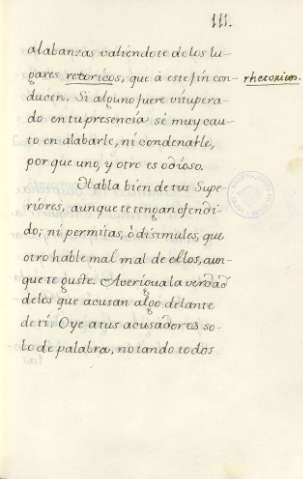 111.
alabanzas valiendote de los lu-
gares retoricos, que à este fin con-
rhetoricos.
ducen. Si alguno fuere vitupera-
do en tu presencia sé muy cau-
to en alabarle, ni condenarle,
porque uno, y otro es odioso.
Habla bien de tus Supe-
riores, aunque te tengan ofendi-
do; ni permitas, ò disimules, que
otro hable mal mal de ellos, aun-
que te guste. Averigua la verdad
de los que acusan algo delante
de ti. Oye a tus acusadores so-
lo de palabra, notando todos